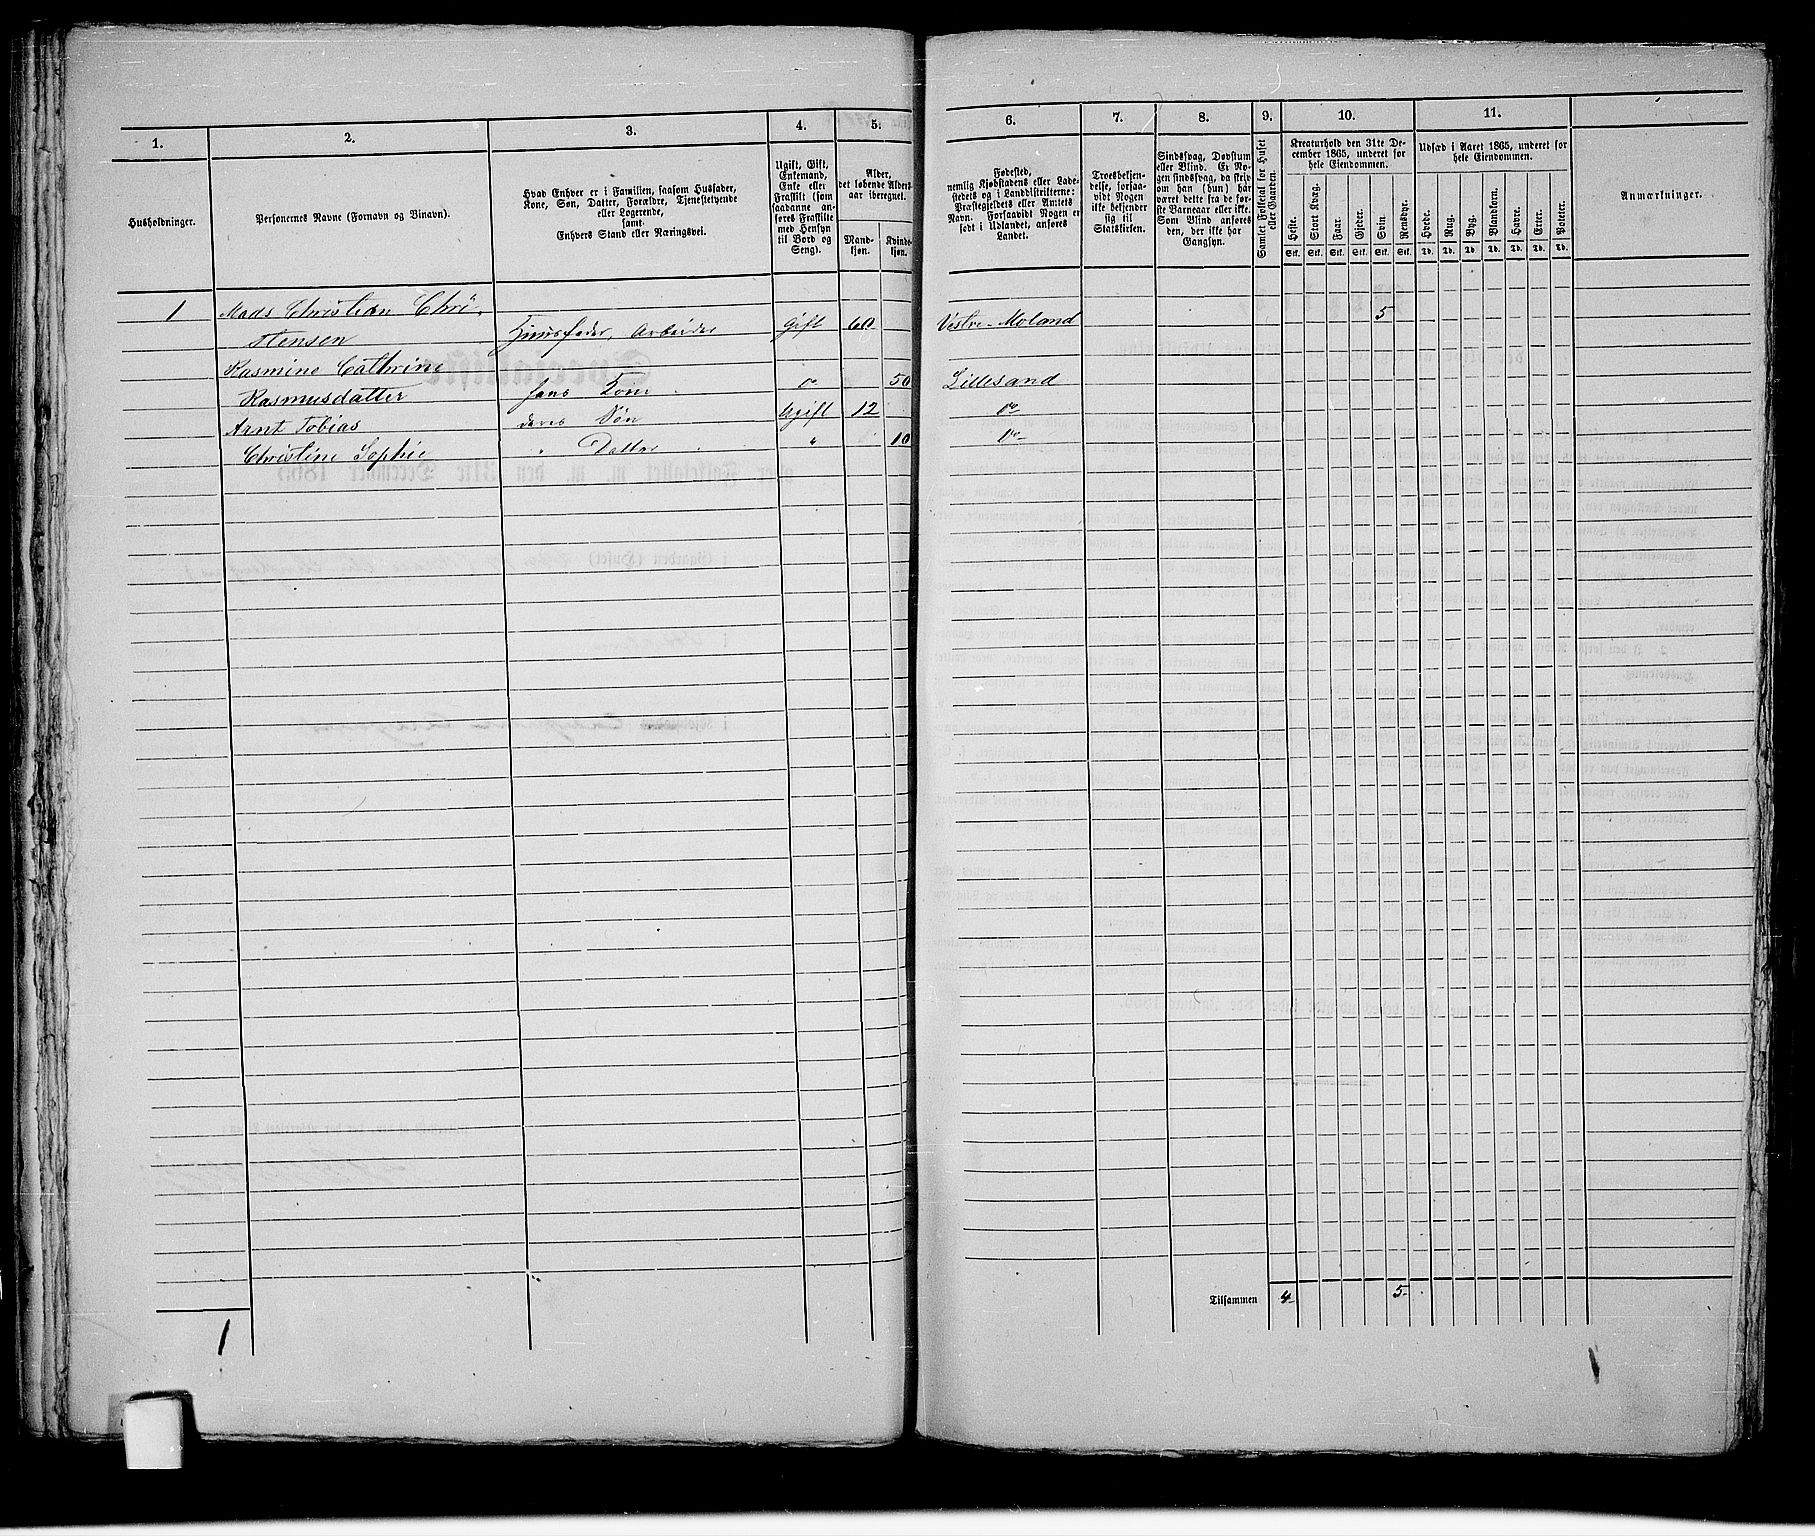 1.
2.
3.
4.
5.
Husholdninger.
Personernes Navne (Fornavn og Binavn).
Hvad Enhver er i Familien, saasom Husfader,
Kone, Søn, Datter, Forældre, Tjenestetyende
eller Logerende,
samt
Enhvers Stand eller Næringsvei.
Ugift, Gift,
Enkemand,
Enke eller
Fraskilt (som
saadanne an-
føres Fraskilte
med Hensyn
til Bord og
Seng).
Alder,
det løbende Alders-
aar iberegnet.
Mand-
kjøn.
Kvinde-
kjøn.
1 Mads Christian Chri-
stensen Huusfader, Arbeider Gift 60
Rasmine Cathrine
Rasmusdatter hans Kone do 50
Arnt Tobias deres Søn Ugift 12
Christine Sophie " Datter " 10
1
6.
7.
8.
9.
10.
11.
Fødested,
nemlig Kjøbstadens eller Lade-
stedets og i Landdistrikterne:
Præstegjeldets eller Amtets
Navn. Forsaavidt Nogen er
født i Udlandet, anføres
Landet.
Troesbekjen-
delse, forsaa-
vidt Nogen
ikke bekjender
sig til
Statskirken.
Sindssvag, Døvstum
eller Blind. Er No-
gen sindssvag, da skriv
om han (hun) har
været dette fra de før-
ste Barneaar eller ikke.
Som Blind anføres
den, der ikke har
Gangsyn.
Samlet Folketal for Huset
eller Gaarden.
Kreaturhold den 31te De-
cember 1865, underet for
hele Eiendommen.
Heste. Stort Kvæg. Faar. Gjeder. Svin. Rensdyr.
Stk. Stk. Stk. Stk. Stk. Stk.
Udsæd i Aaret 1865, underet for
hele Eiendommen.
Hvede. Rug. Byg. Blandkorn. Havre. Erter. Poteter.
Td. Td. Td. Td. Td. Td. Td.
Anmærkninger.
Vestre-Moland 5
Lillesand
do
do
Tilsammen 4 5